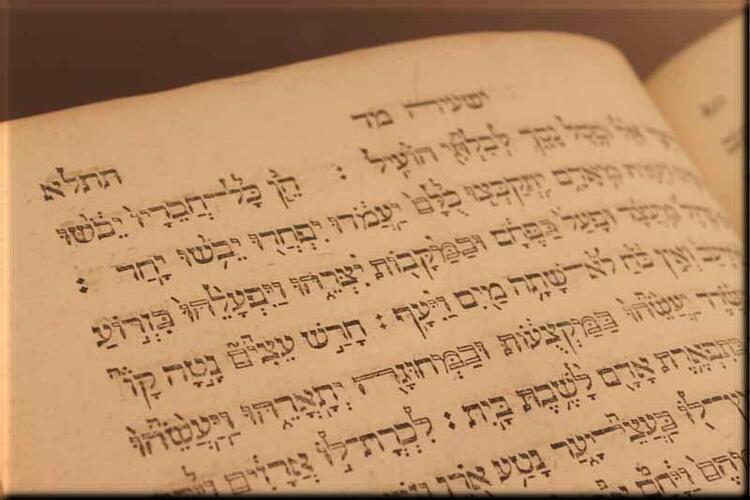 ישעיה מד
תתלא
אֵל וּפֶסֶל נָסָךְ לְבִלְתִּי הוֹעִיל : הֵן כָּל־חֲבֵרָיו יֵבֹשׁוּ
מֵאָדָם יִתְקַבְּצוּ כֻלָּם יַעֲמֹדוּ יִפְחֲדוּ יֵבֹשׁוּ יָחַד :
מַעֲצָד וּפָעַל בַּפֶּחָם וּבַמַּקָּבוֹת יִצְּרֵהוּ וַיִּפְעָלֵהוּ בִּזְרוֹעַ
וְאֵין כֹּחַ לֹא־שָׁתָה מַיִם וַיִּיעָף : חָרַשׁ עֵצִים נָטָה קָו
יַעֲשֵׂהוּ בַּמַּקְצֻעוֹת וּבַמְּחוּגָה יְתָאֳרֵהוּ וַיַּעֲשֵׂהוּ
כְּתִפְאֶרֶת אָדָם לָשֶׁבֶת בָּיִת : לִכְרָת־לוֹ אֲרָזִים
לוֹ בַּעֲצֵי־יָעַר נָטַע אֹרֶן